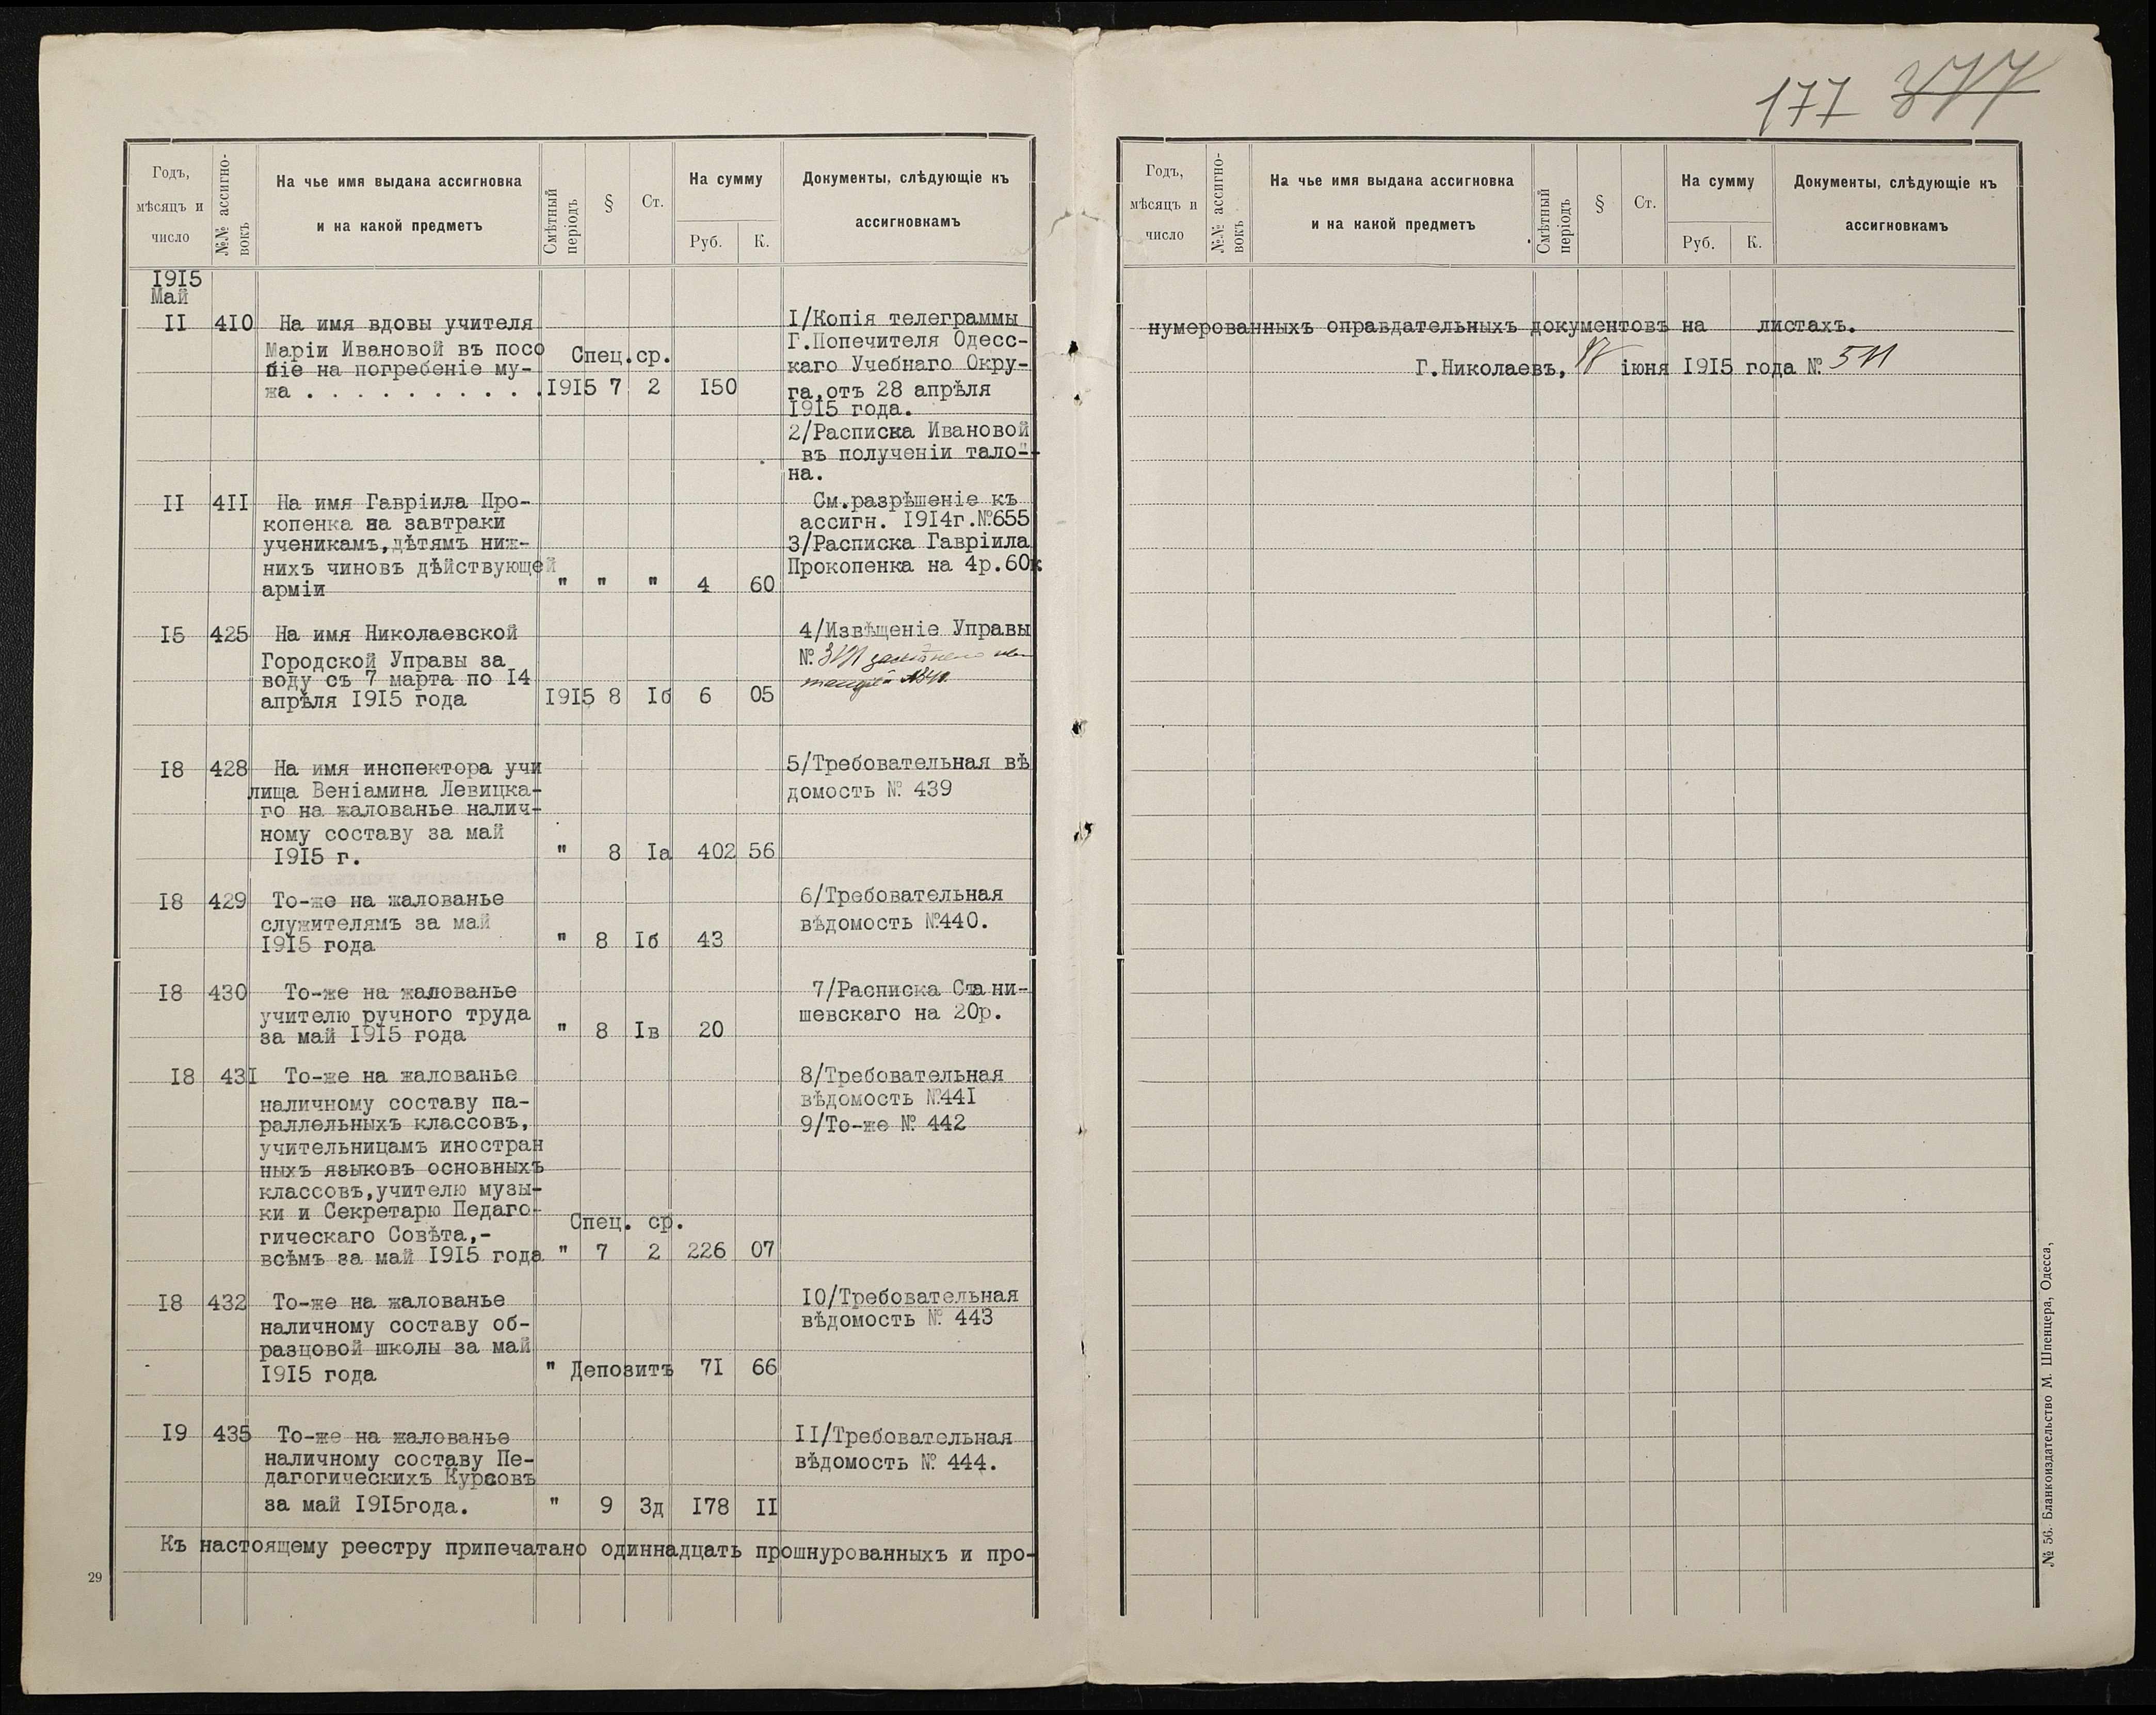 177 377
Годъ,
мѣсяцъ и
число
№№ ассигно-
вокъ
На чье имя выдана ассигновка
и на какой предметъ
Смѣтный
періодъ
§
Ст.
На сумму
Руб.
К.
Документы, слѣдующіе къ
ассигновкамъ
1915
Май
II 4I0 На имя вдовы учителя
Маріи Ивановой въ посо
біе на погребеніе му-
жа . . . . . . . . . .
Спец.ср.
1915 7 2 I50
I/Копія телеграммы
Г.Попечителя Одесс-
каго Учебнаго Окру-
га,отъ 28 апрѣля
I9I5 года.
2/Расписка Ивановой
въ полученіи тало-
на.
II 4II На имя Гавріила Про-
копенка на завтраки
ученикамъ,дѣтямъ ниж-
нихъ чиновъ дѣйствующей
арміи " " " 4 60
См.разрѣшеніе къ
ассигн. I9I4г.№655
3/Расписка Гавріила
Прокопенка на 4р.60к
I5 425 На имя Николаевской
Городской Управы за
воду съ 7 марта по I4
апрѣля I9I5 года I9I5 8 Iб 6 05
4/Извѣщеніе Управы
№
I8 428 На имя инспектора учи
лища Веніамина Левицка-
го на жалованье налич-
ному составу за май
I9I5 г. " 8 Iа 402 56
5/Требовательная вѣ
домость № 439
I8 429 То-же на жалованье
служителямъ за май
I9I5 года " 8 Iб 43
6/Требовательная
вѣдомость №440.
I8 430 То-же на жалованье
учителю ручного труда
за май I9I5 года " 8 Iв 20
7/Расписка Стани-
шевскаго на 20р.
I8 43I То-же на жалованье
наличному составу па-
раллельныхъ классовъ,
учительницамъ иностран
ныхъ языковъ основныхъ
классовъ,учителю музы-
ки и Секретарю Педаго-
гическаго Совѣта,-
Спец. ср.
всѣмъ за май I9I5 года " 7 2 226 07
8/Требовательная
вѣдомость №44I
9/То-же № 442
I8 432 То-же на жалованье
наличному составу об-
разцовой школы за май
I9I5 года " Депозитъ 7I 66
I0/Требовательная
вѣдомость № 443
I9 435 То-же на жалованье
наличному составу Пе-
дагогическихъ Курсовъ
за май I9I5года. " 9 3д I78 II
II/Требовательная
вѣдомость № 444.
Къ настоящему реестру припечатано одиннадцать прошнурованныхъ и про-
29
Годъ,
мѣсяцъ и
число
№№ ассигно-
вокъ
На чье имя выдана ассигновка
и на какой предметъ
Смѣтный
періодъ
§
Ст.
На сумму
Руб.
К.
Документы, слѣдующіе къ
ассигновкамъ
нумерованныхъ оправдательныхъ документовъ на листахъ.
Г.Николаевъ, іюня I9I5 года № 511
№ 56. Бланкоиздательство М. Шпенцера, Одесса,